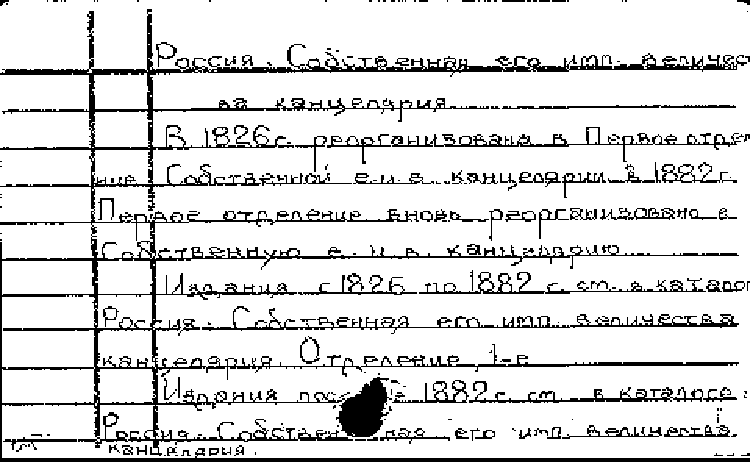 Россия. Собственная его имп. величес
ва канцелярия.
В 1826 г. реорганизована в Первое отде
ние Собственной е.и.в. канцелярии. В 1882 г.
Первое отделение вновь реорганизовано в
Собственную е.и.в. канцелярию.
Издания с 1826 по 1882 г. см. в катало
Россия. Собственная его имп. величества
канцелярия. Отделение 1-е
Издания после 1882 г. см. в каталоге:
Россия. Собственная его имп. величества
канцелярия.